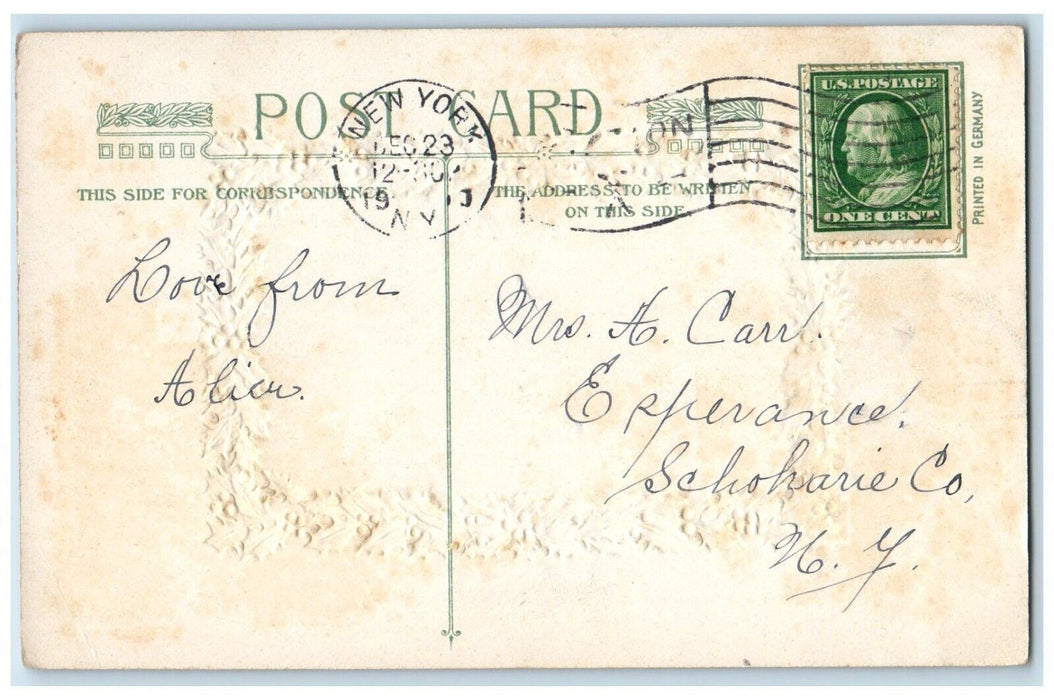 POST CARD
NEW YORK
DEC 23
12-30
19
N.Y.
IN
U.S. POSTAGE
ONE CENT
PRINTED IN GERMANY
THIS SIDE FOR CORRESPONDENCE
THE ADDRESS TO BE WRITTEN
ON THIS SIDE
Love from
Alice.
Mrs. A. Carr.
Esperance.
Schoharie Co,
N. Y.